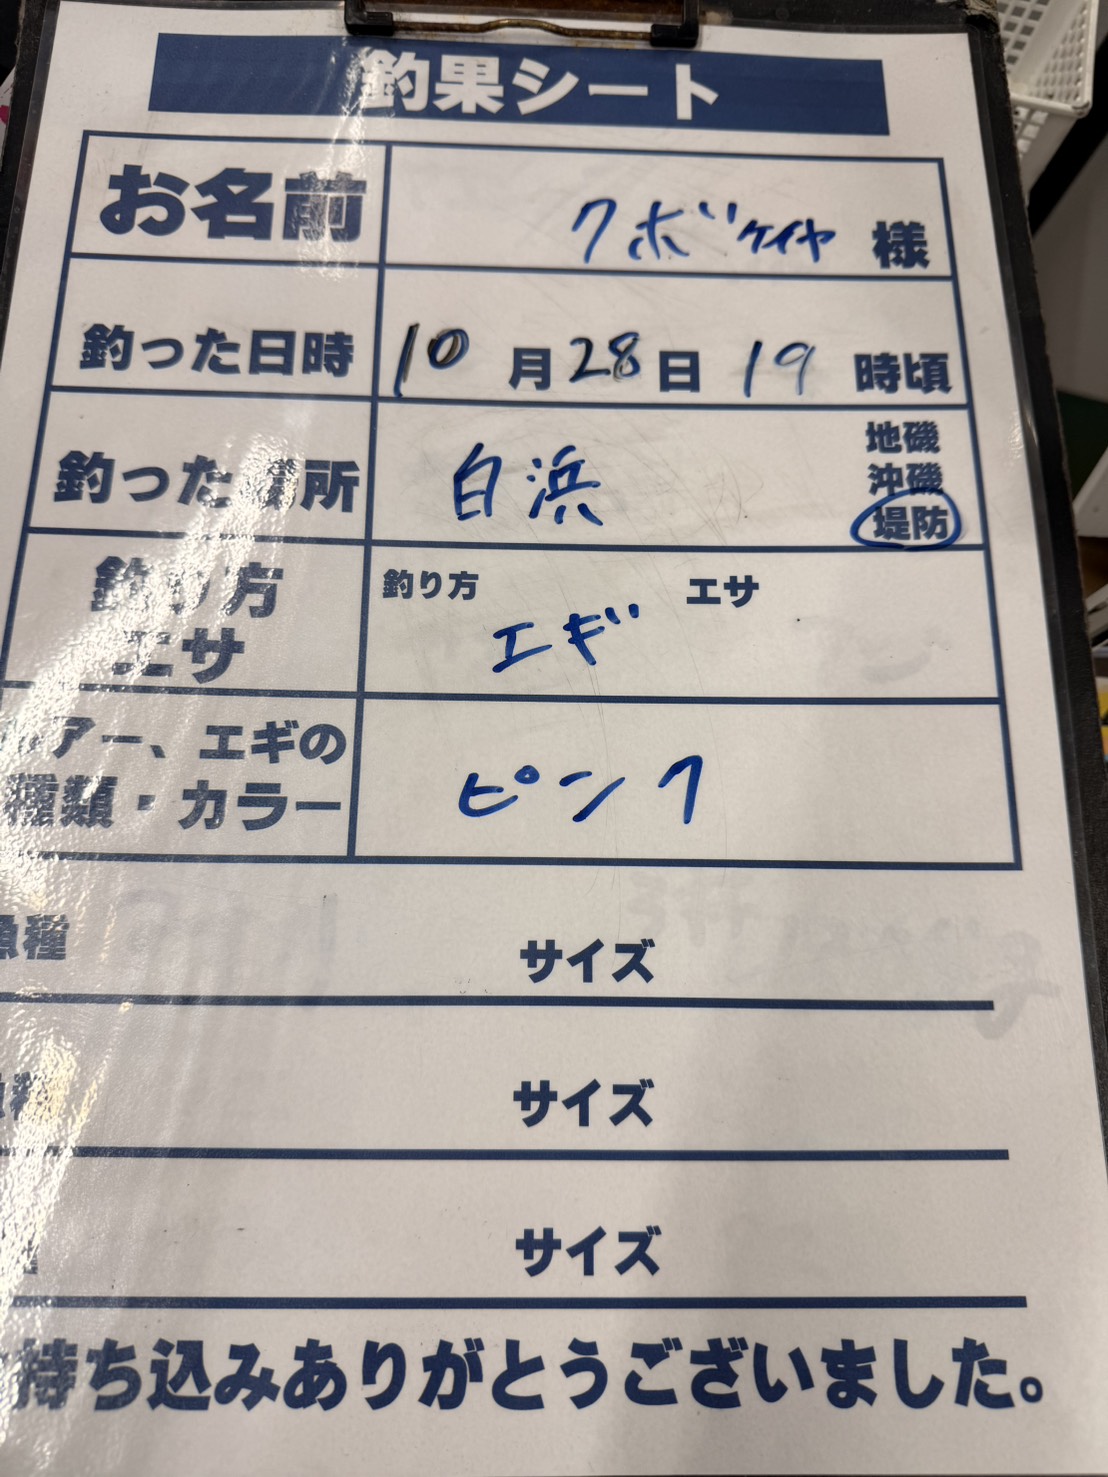 釣果シート
お名前 クボ ケイヤ 様
釣った日時 10月28日 19時頃
釣った場所 白浜 地磯
沖磯
堤防
釣り方 釣り方 エサ
エサ エギ
ルアー、エギの
種類・カラー ピンク
魚種 サイズ
魚種 サイズ
サイズ
持ち込みありがとうございました。